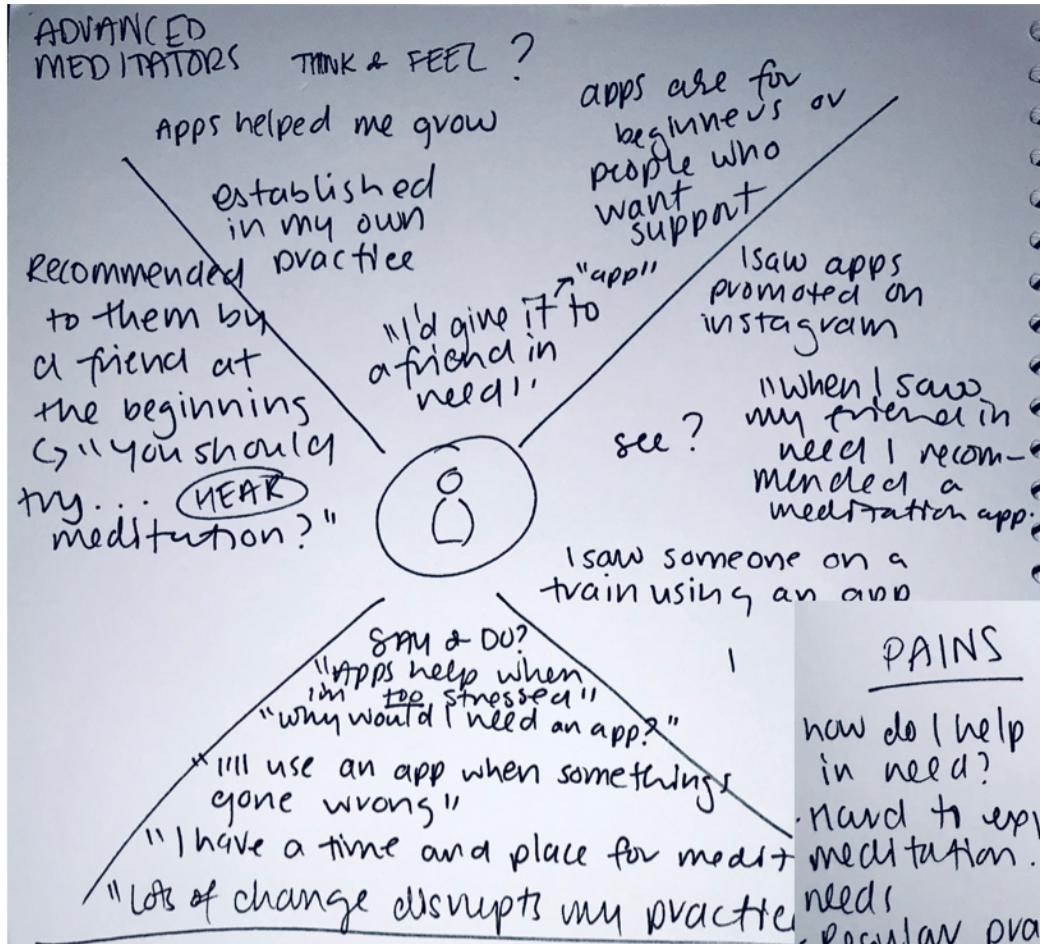 ADVANCED
MEDITATORS THINK & FEEL ?
Apps helped me grow
established
in my own
practice
apps are for
beginners or
people who
want
support
"I'd give it to
"app"
a friend in
need"
Recommended
to them by
a friend at
the beginning
"you should
try... HEAR
meditation?"
I saw apps
promoted on
instagram
see?
"when I saw
my friend in
need I recom-
mended a
meditation app.
I saw someone on a
train using an app
SAY & DO?
"Apps help when
i'm too stressed"
"why would I need an app?"
"I'll use an app when somethings
gone wrong"
"I have a time and place for medit
"Lots of change disrupts my practice
PAINS
how do I help
in need?
. Hard to exp
meditation.
needs
. Regular pra